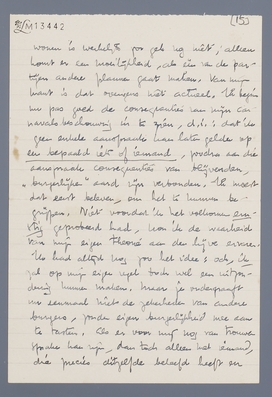 2/M13442
15
wonen is werkelijk zo gek nog niet; alleen
komt er een moeilijkheid, als één v.d. par-
tijen andere plannen gaat maken. Van mijn
kant is dat overigens niet actueel. Ik begin
nu pas goed de consequenties van mijn car-
navalsbeschouwing in te zien, d.i.: dat ik
geen enkele aanspraak kan laten gelden op
een bepaald iets of iemand, zodra aan die
aanspraak consequenties van blijvenden,
"burgerlijken" aard zijn verbonden. Ik moest
dat eerst beleven, om het te kunnen be-
grijpen. Niet voordat ik het volkomen ern-
stig geprobeerd had, kon ik de waarheid
van mijn eigen theorie aan den lijve ervaren.
Ik had altijd nog zoo het idee: och, ik
zal op mijn eigen regel toch wel een uitzon-
dering kunnen maken. Maar je ondergraaft
nu eenmaal niet de zekerheden van andere
burgers, zonder eigen burgerlijkheid mee aan
te tasten. Als er voor mij nog van trouwen
sprake kan zijn, dan toch alleen met iemand,
die precies ditzelfde beleefd heeft en